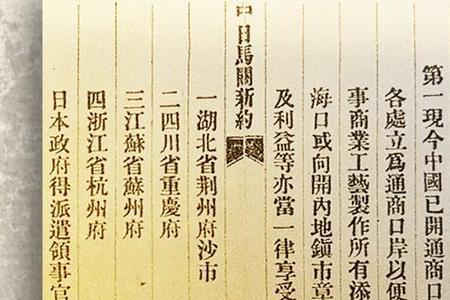 第一現今中國已開通商口
各處立爲通商口岸以便
事商業工藝製作所有添
海口或向開內地鎭市章
及利益等亦當一律享受
中日馬關新約
一湖北省荆州府沙市
二四川省重慶府
三江蘇省蘇州府
四浙江省杭州府
日本政府得派遣領事官